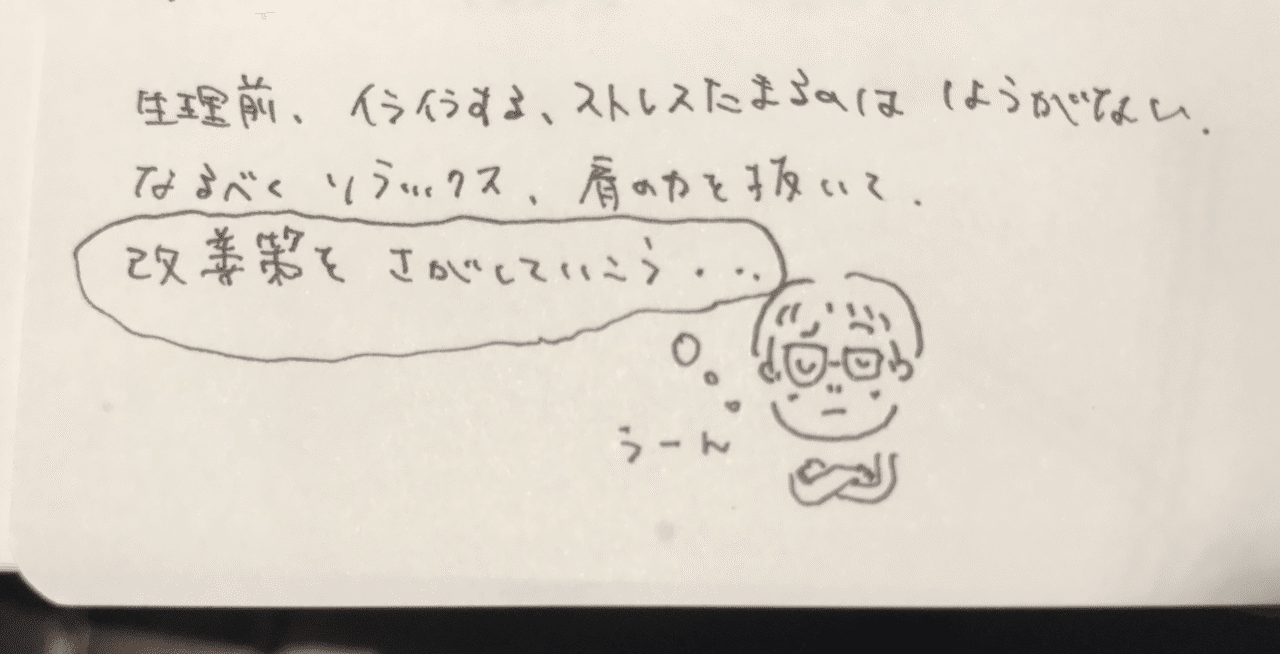 生理前、イライラする、ストレスたまるのは しょうがない.
なるべく リラックス、肩の力を抜いて.
改善策を さがしていこう・・・
うーん